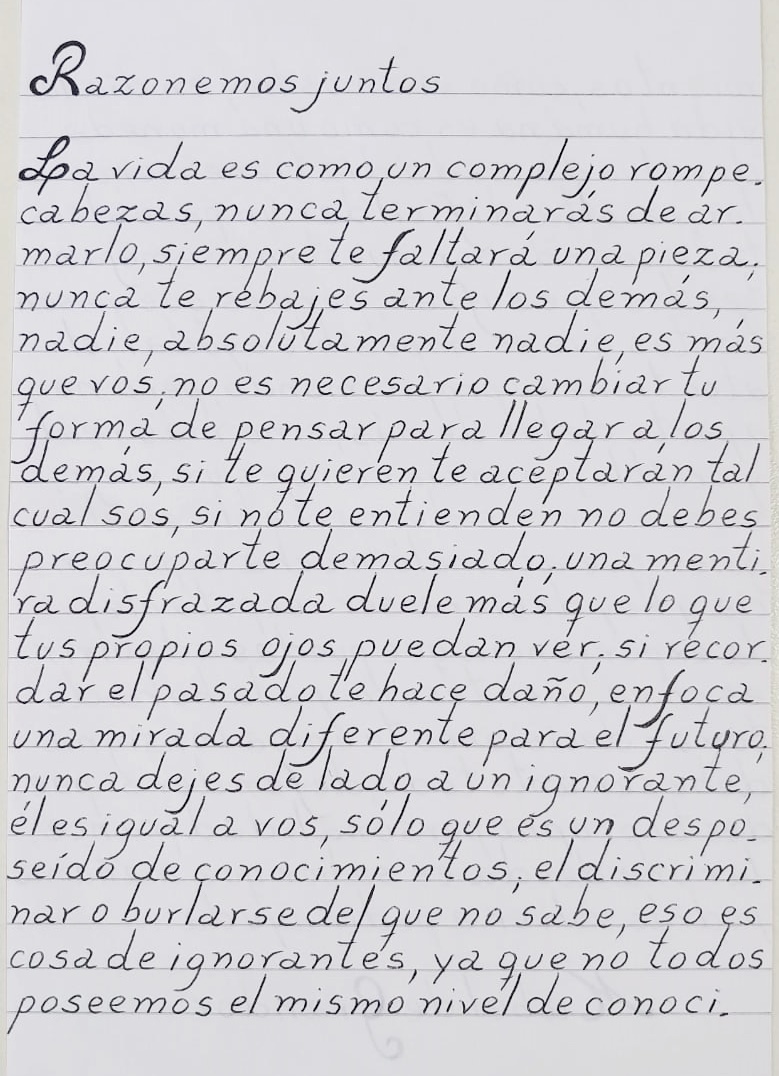 Razonemos juntos
La vida es como un complejo rompe-
cabezas, nunca terminarás de ar-
marlo, siempre te faltará una pieza;
nunca te rebajes ante los demás,
nadie, absolutamente nadie, es más
que vos; no es necesario cambiar tu
forma de pensar para llegar a los
demás, si te quieren te aceptarán tal
cual sos, si no te entienden no debes
preocuparte demasiado; una menti-
ra disfrazada duele más que lo que
tus propios ojos puedan ver; si recor-
dar el pasado te hace daño, enfoca
una mirada diferente para el futuro;
nunca dejes de lado a un ignorante,
él es igual a vos, sólo que es un despo-
seído de conocimientos; el discrimi-
nar o burlarse del que no sabe, eso es
cosa de ignorantes, ya que no todos
poseemos el mismo nivel de conoci-